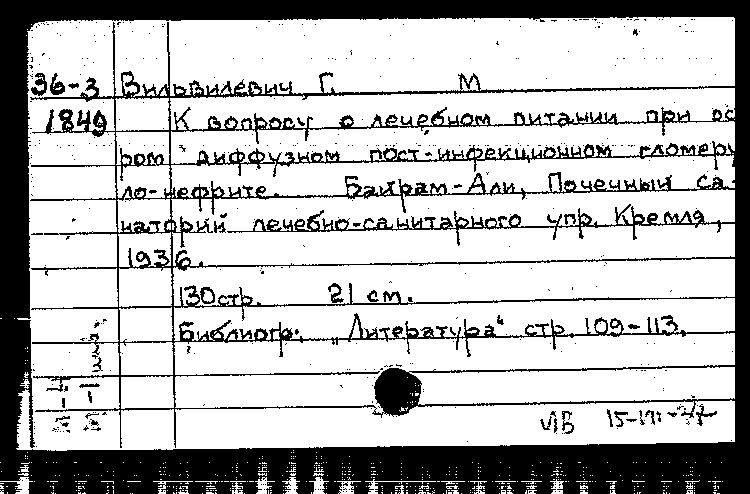 36-3 Вильвилевич, Г. М
1849 К вопросу о лечебном питании при ос
ром диффузном пост-инфекционном гломеру
ло-нефрите. Байрам-Али, Почечный са-
наторий лечебно-санитарного упр. Кремля,
1936.
130стр. 21 см.
Библиогр: „Литература“ стр. 109-113.
М-4